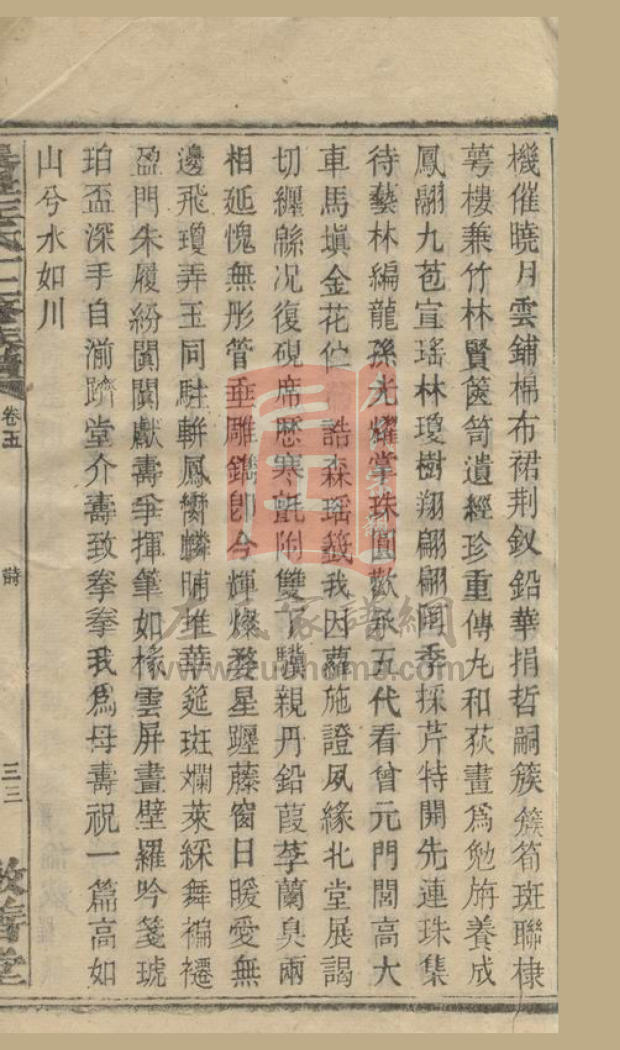 機催曉月雲鋪棉布裙荊釵鉛華捐哲嗣簇簇筍斑聯棣
萼樓兼竹林賢篋笥遺經珍重傳丸和荻畫爲勉旃養成
鳳翮九苞宣瑤林瓊樹翔翩翩閬季採芹特開先連珠集
待藝林編龍孫光耀掌珠圓歡承五代看曾元門閭高大
車馬塡金花位誥森瑶籤我因蘿施證夙緣北堂展謁
切纏緜况復硯席歷寒氈附雙丁驥親丹鉛葭莩蘭臭兩
相延愧無彤管垂雕鐫卽今輝燦婺星躔藤窗日暖愛無
邊飛瓊弄玉同駐軿鳳麟脯堆華筵斑斕萊綵舞褊褼
盈門朱履紛闐闐獻壽爭揮筆如椽雲屏畫壁羅吟箋琥
珀盃深手自湔躋堂介壽致拳拳我爲母壽祝一篇高如
山兮水如川
二修族譜
卷五
詩
三三
敦善堂
左氏家譜網
www.zuohome.com